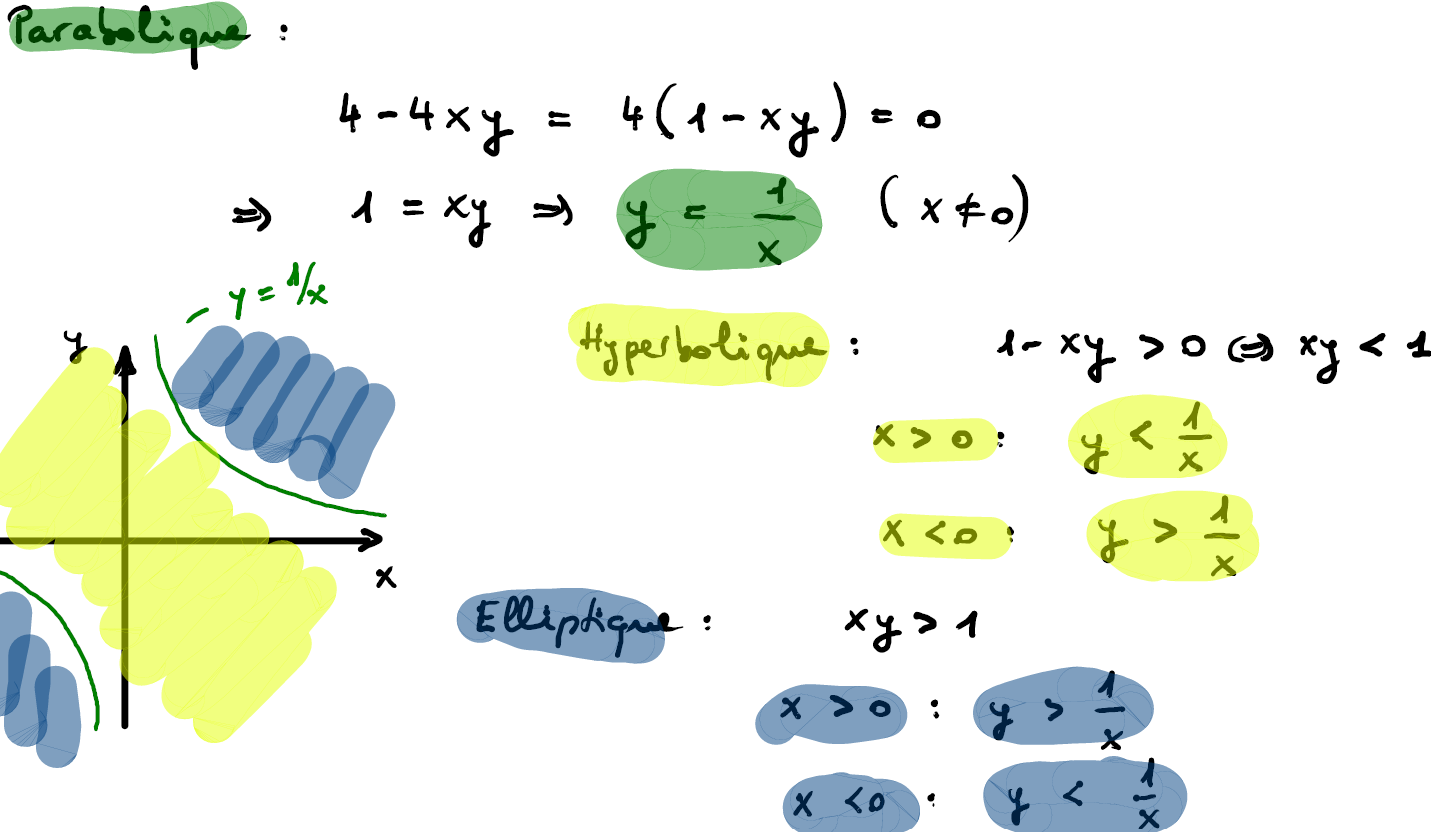 Parabolique :
4 - 4xy = 4(1 - xy) = 0
⇒ 1 = xy ⇒ y = 1/x (x ≠ 0)
y = 1/x
y
Hyperbolique : 1 - xy > 0 ⇔ xy < 1
x > 0 : y < 1/x
x < 0 : y > 1/x
x
Elliptique : xy > 1
x > 0 : y > 1/x
x < 0 : y < 1/x